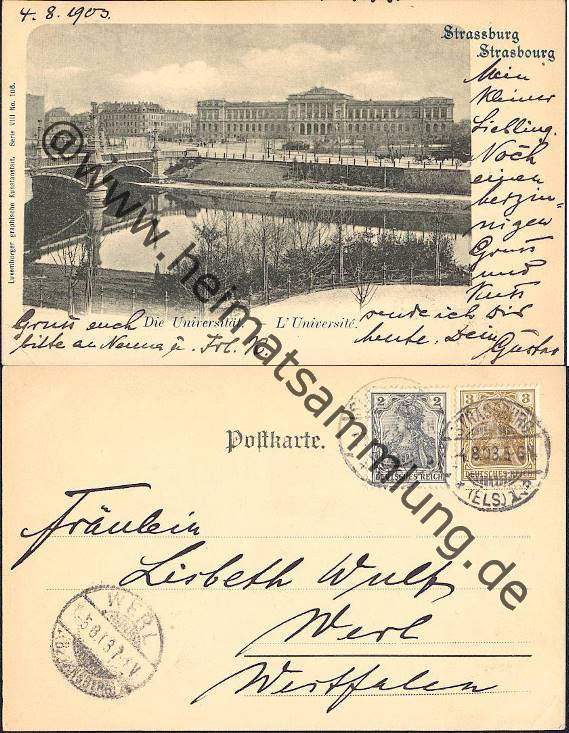 4. 8. 1903.
Strassburg
Strasbourg
Luxemburger graphische Kunstanstalt. Serie VIII No. 106.
Mein
kleiner
Liebling.
Noch
einen
herzin-
nigen
Gruss
und
Kuss
sende ich Dir
heute. Dein
Gustav
Die Universität. L'Université.
Gruss euch
bitte an
@www.heimatsammlung.de
Postkarte.
2 2
DEUTSCHES REICH
3 3
DEUTSCHES REICH
STRASSBURG
4.8.03.5-6N
(ELS)
Fräulein
Lisbeth Wulf
Werl
Westfalen
WERL